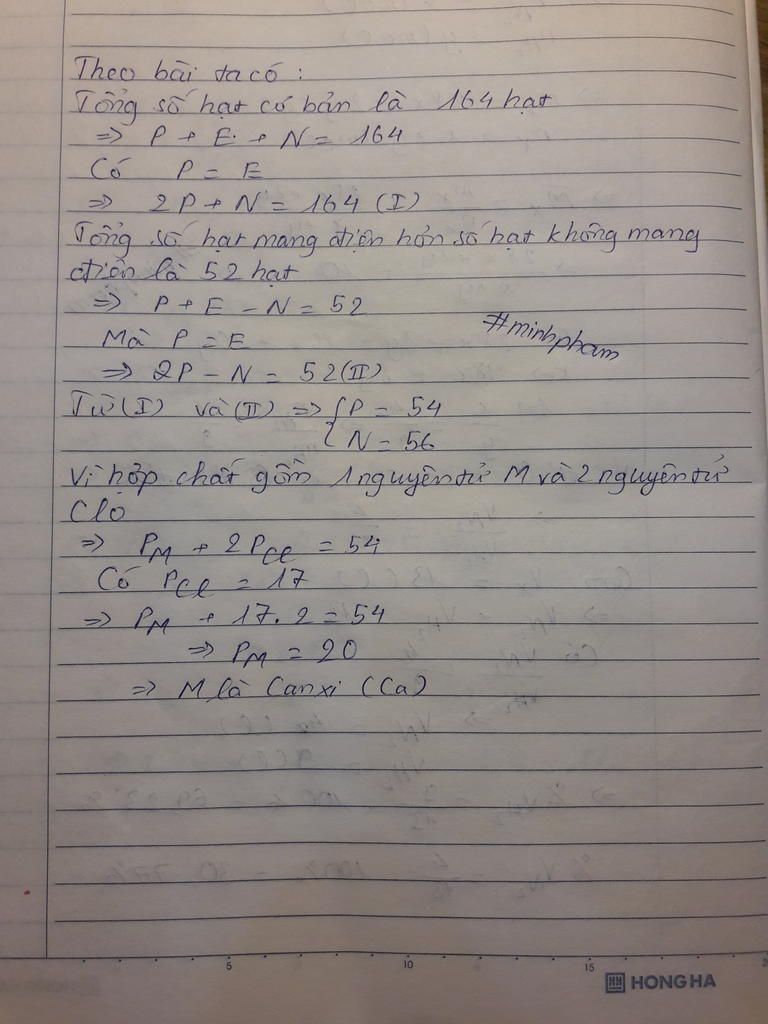 Theo bài ta có :
Tổng số hạt cơ bản là 164 hạt
=> P + E + N = 164
Có P = E
=> 2P + N = 164 (I)
Tổng số hạt mang điện hơn số hạt không mang
điện là 52 hạt
=> P + E - N = 52
Mà P = E
#minhpham
=> 2P - N = 52 (II)
Từ (I) và (II) => { P = 54
N = 56
Vì hợp chất gồm 1 nguyên tử M và 2 nguyên tử
Clo
=> P_M + 2P_Cl = 54
Có P_Cl = 17
=> P_M + 17.2 = 54
=> P_M = 20
=> M là Canxi (Ca)
5 10 15
HONG HA